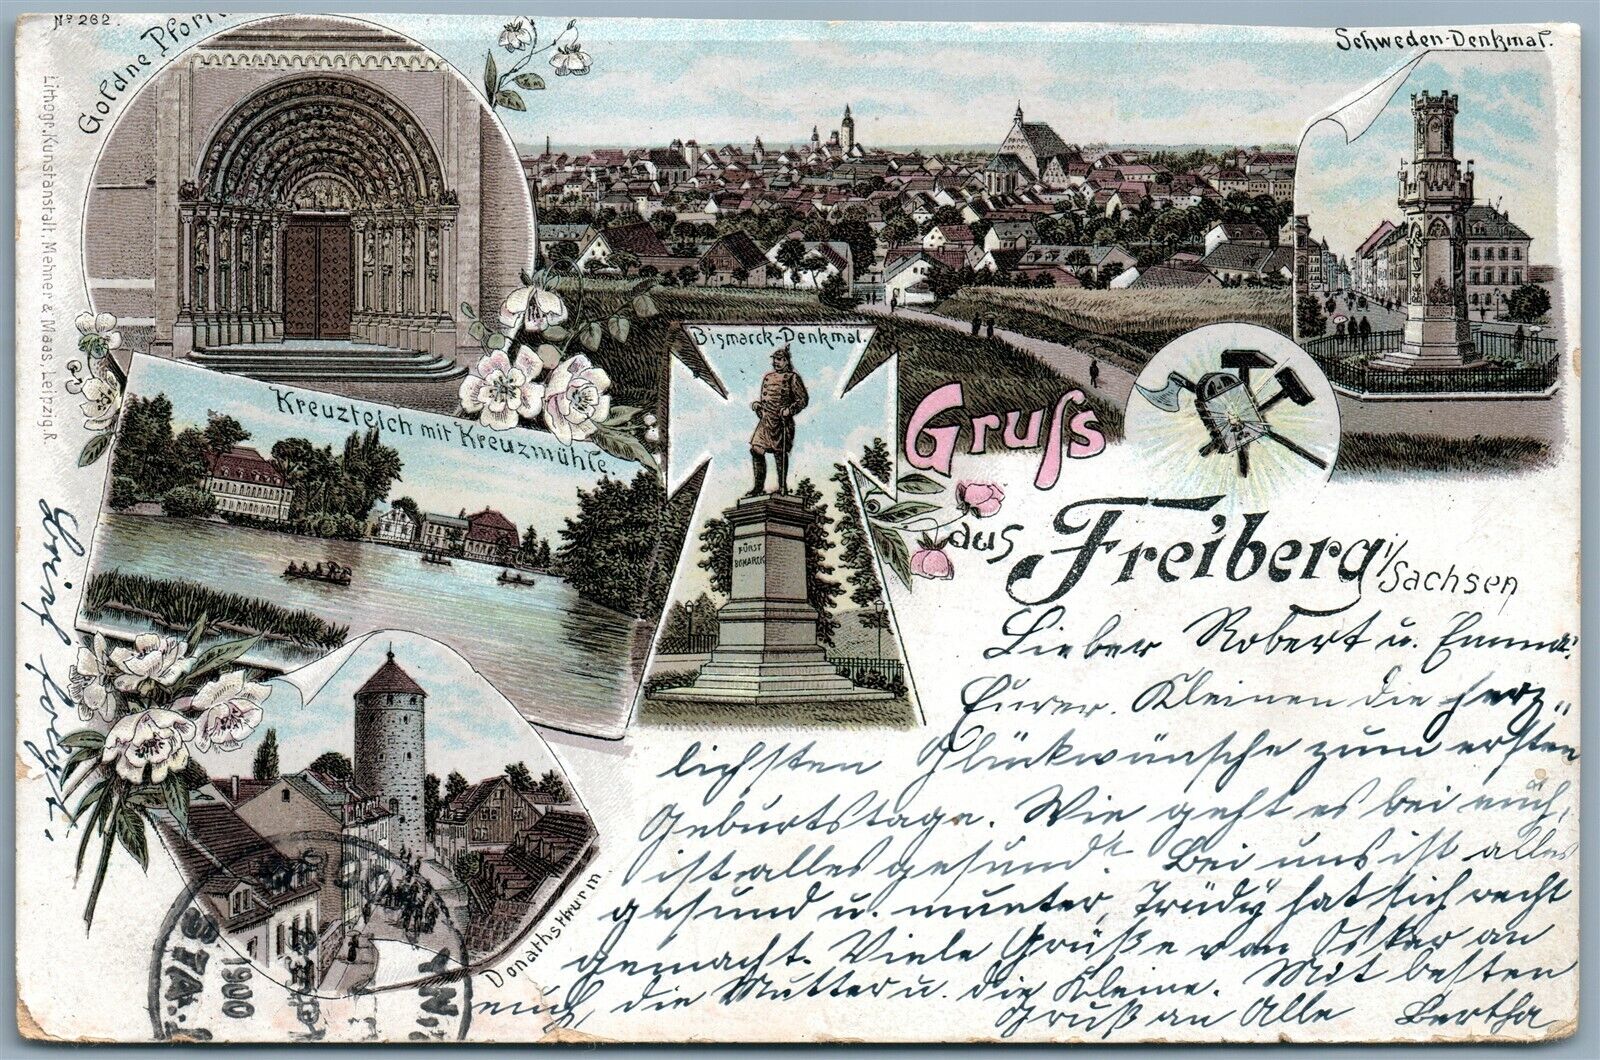 No 262.
Goldne Pforte
Schweden-Denkmal.
Lithogr. Kunstanstalt. Mehner & Maas, Leipzig. R.
Bismarck-Denkmal.
Kreuzteich mit Kreuzmühle.
FÜRST
BISMARCK
Gruss
aus Freiberg i/Sachsen
Donathsthurm
Lieber Robert u. Emma!
Eurer Kleinen die herz-
lichsten Glückwünsche zum ersten
Geburtstage. Wie geht es bei euch,
ist alles gesund? Bei uns ist alles
gesund u. munter, Trüdy hat sich recht
gemacht. Viele Grüße von Oskar an
euch, die Mutter u. die Kleine. Mit besten
Gruß an Alle Bertha
Brief folgt.
N.Y.
STA.
1900